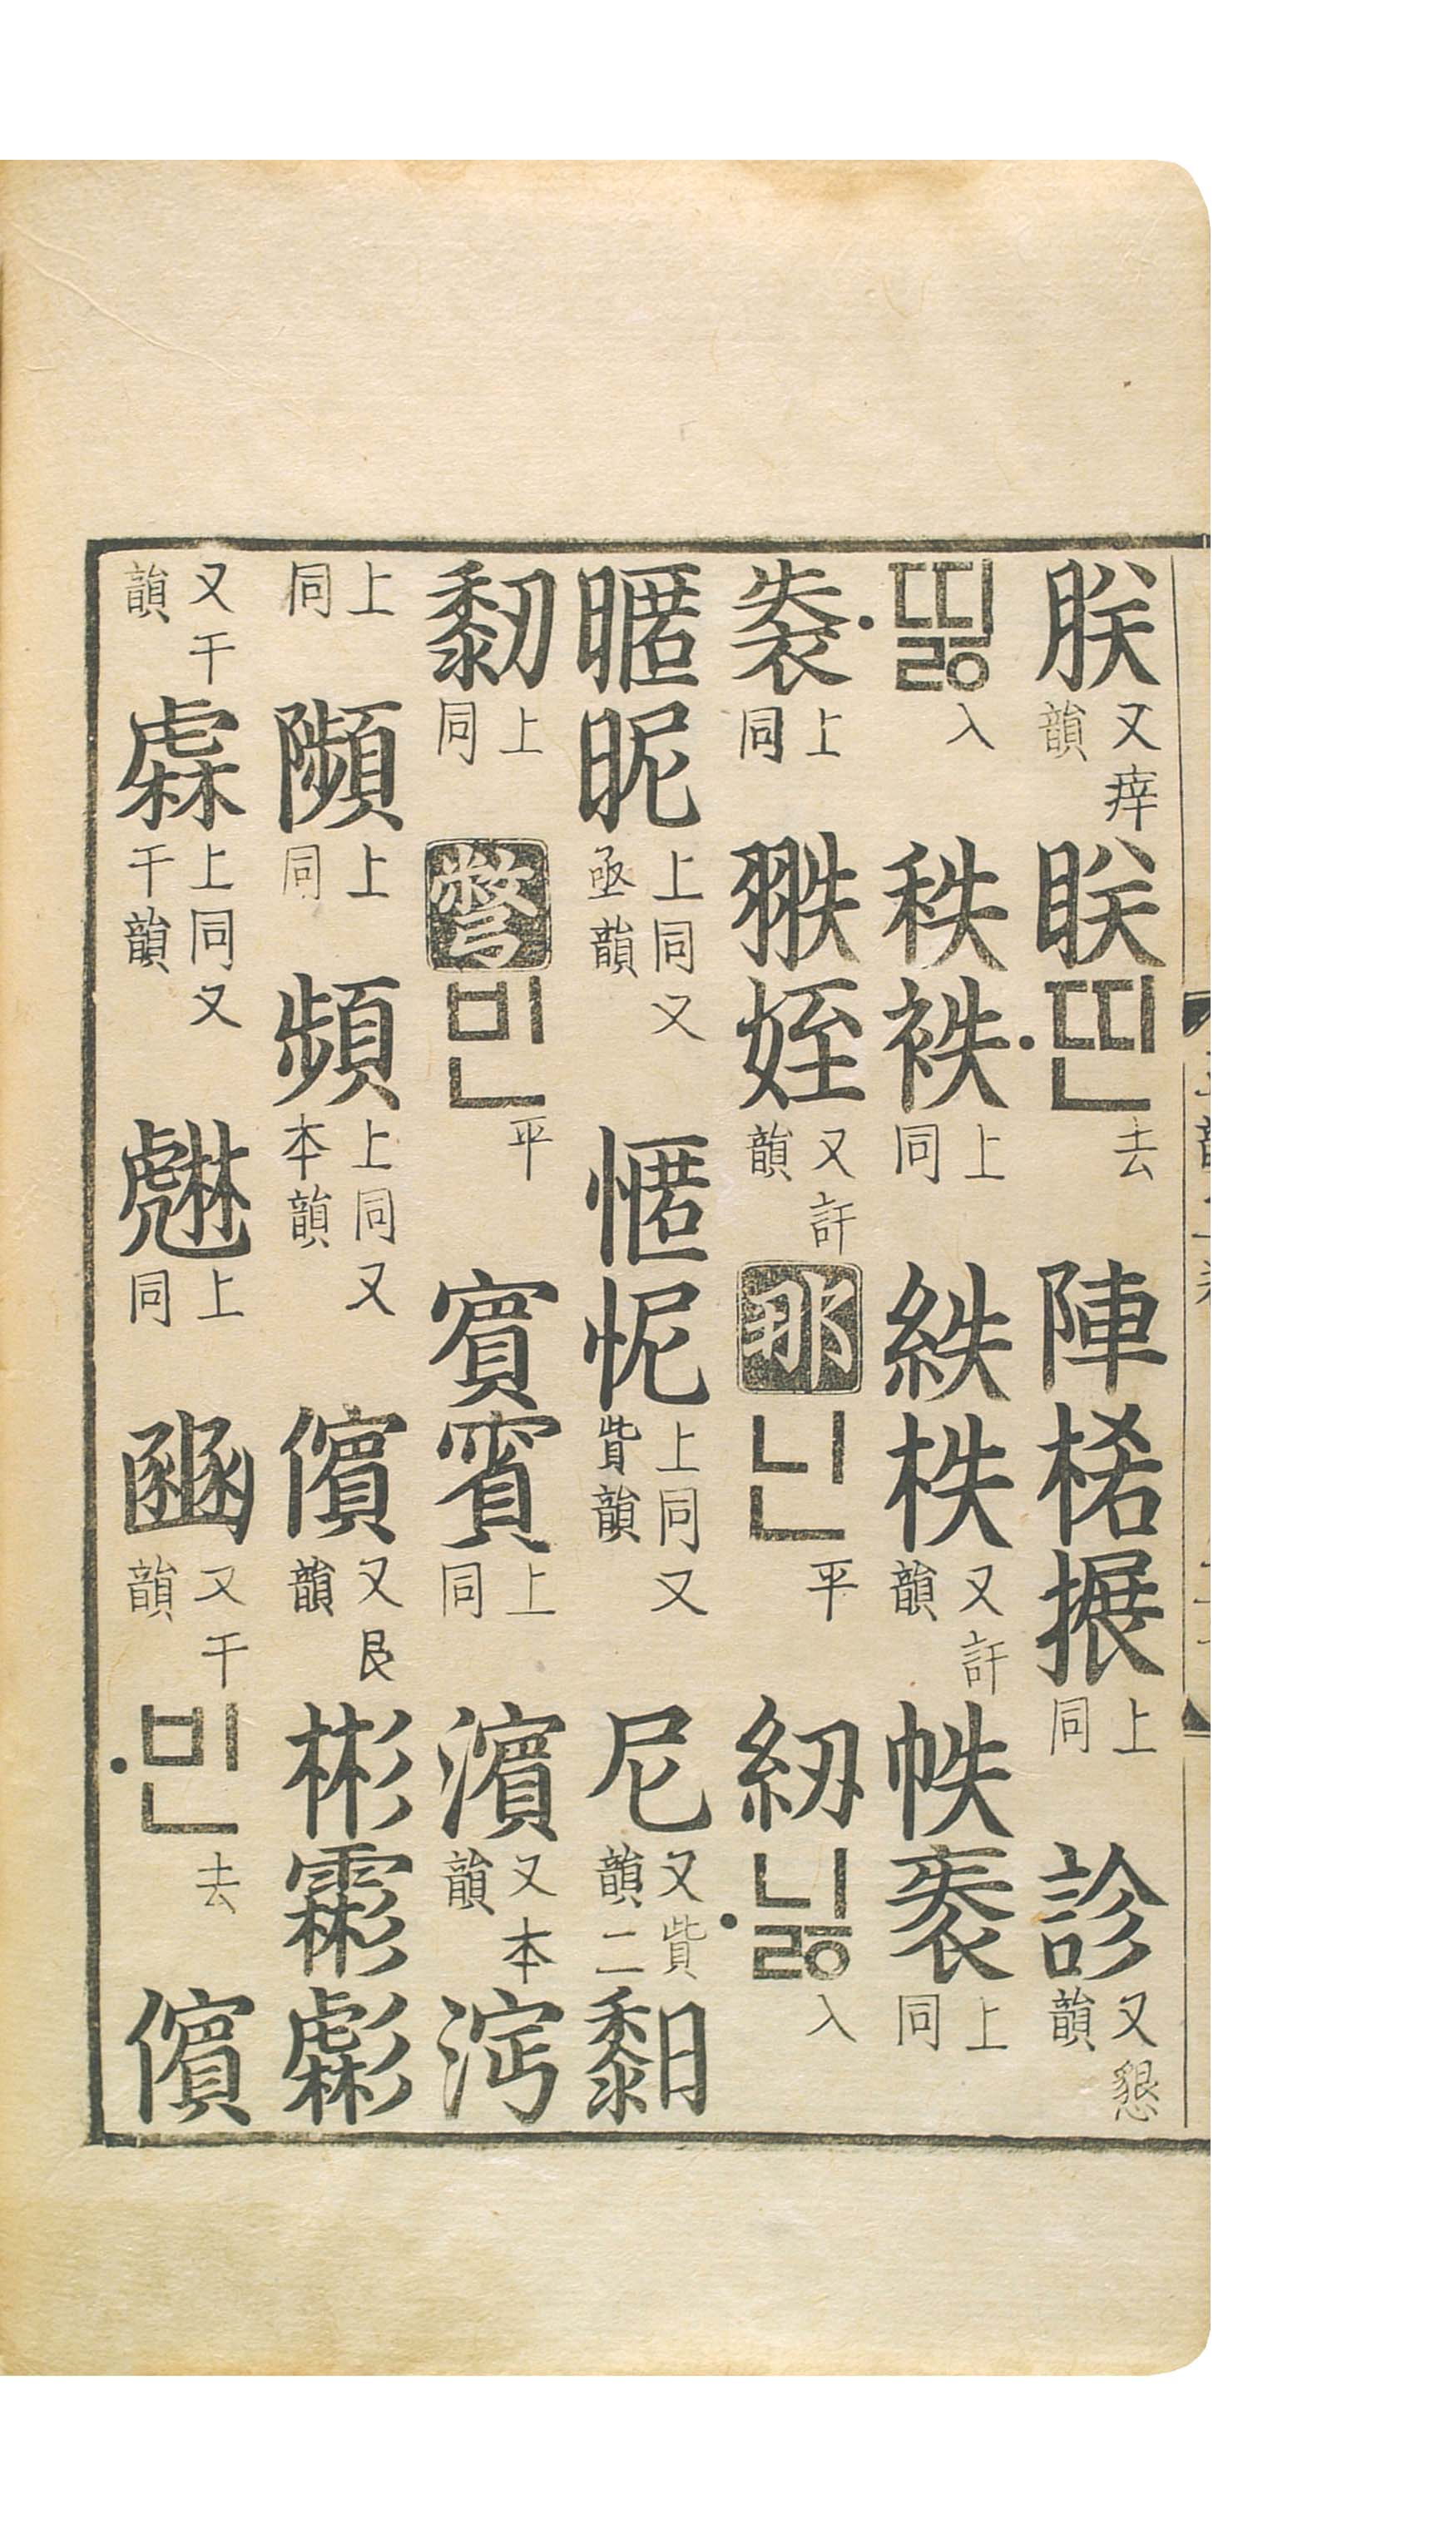 朕又痒韻眹띤去陣上同診又懇韻
띠ᇙ入秩袟上同紩柣又訐韻帙袠上同
上同翐姪又訐韻那닌平紉니ᇙ入
暱昵上同又亟韻怩上同又貲韻尼又貲韻二䵒
䵑上同彆빈平賓賔上同濱又本韻
上同上同頻上同又本韻儐又艮韻彬霦虨
又干韻上同又干韻上同豳又干韻빈去儐